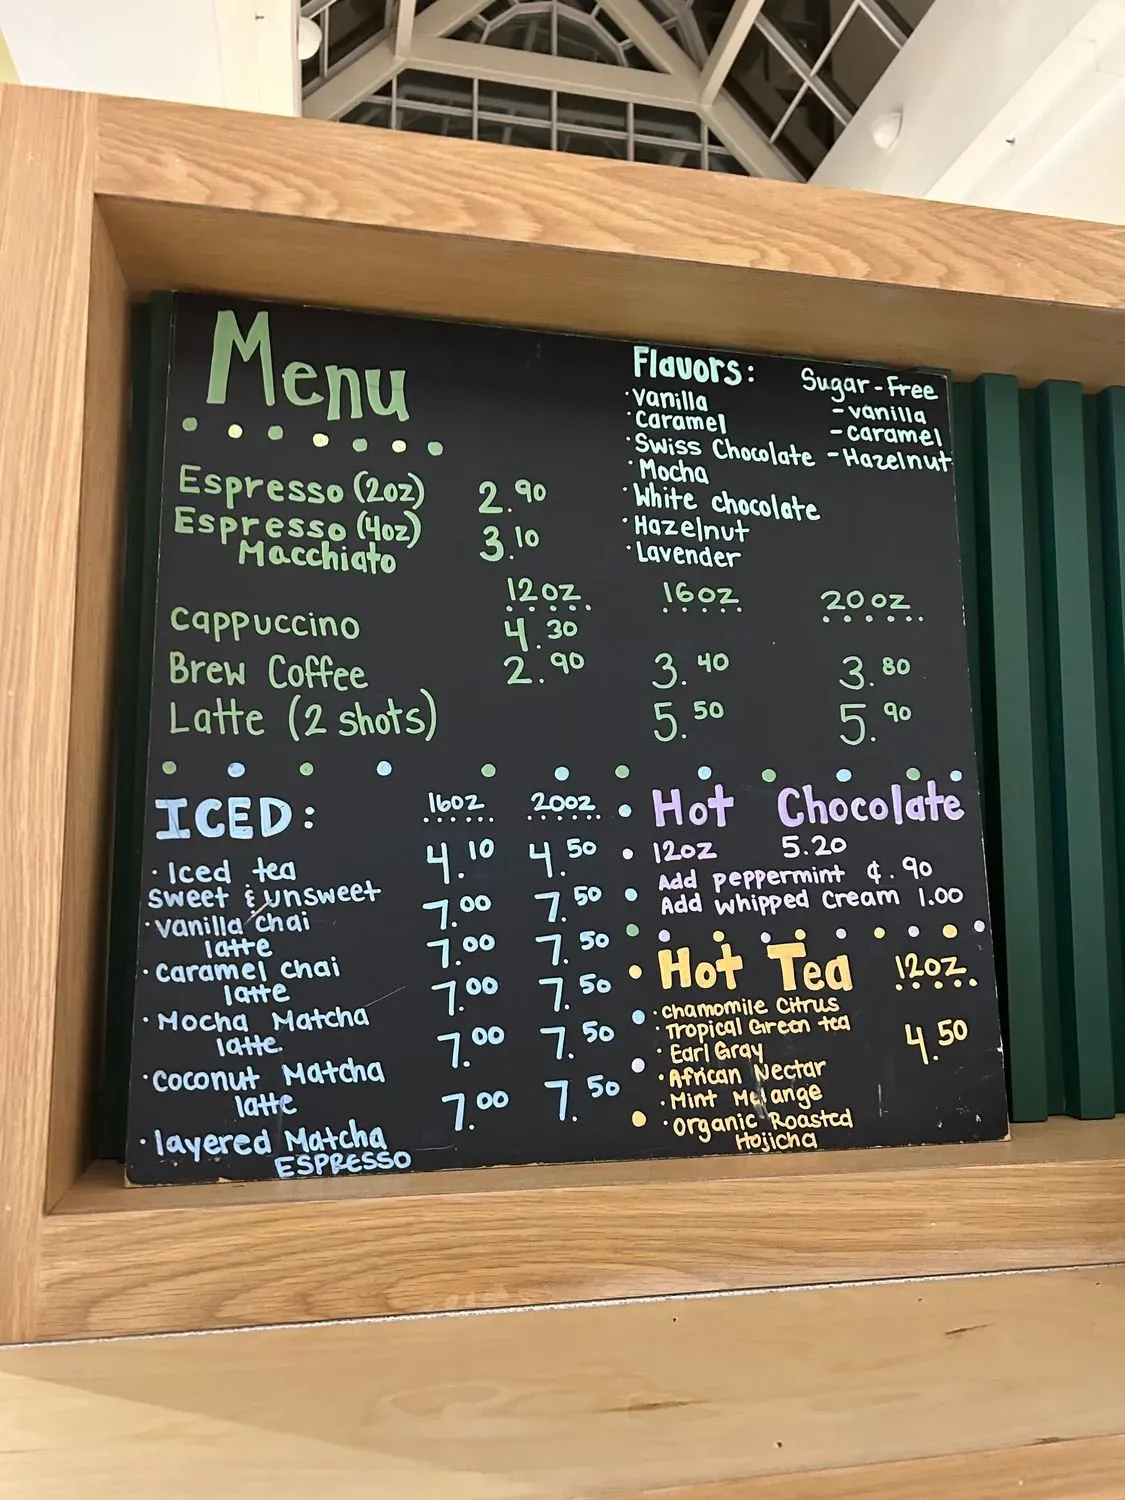 Menu
Espresso (2oz) 2.90
Espresso (4oz) 3.10
Macchiato
12oz 16oz 20oz
Cappuccino 4.30
Brew Coffee 2.90 3.40 3.80
Latte (2 shots) 5.50 5.90
Flavors:
·Vanilla
·Caramel
·Swiss Chocolate
·Mocha
·White chocolate
·Hazelnut
·Lavender
Sugar-Free
-vanilla
-caramel
-Hazelnut
ICED: 16oz 20oz
·Iced tea 4.10 4.50
Sweet & unsweet
·Vanilla chai 7.00 7.50
latte
·Caramel chai 7.00 7.50
latte
·Mocha Matcha 7.00 7.50
latte
·Coconut Matcha 7.00 7.50
latte
·layered Matcha 7.00 7.50
ESPRESSO
Hot Chocolate
12oz 5.20
Add peppermint ¢.90
Add whipped cream 1.00
Hot Tea 12oz
·chamomile Citrus
·Tropical Green tea 4.50
·Earl Gray
·African Nectar
·Mint Melange
·Organic Roasted
Hojicha